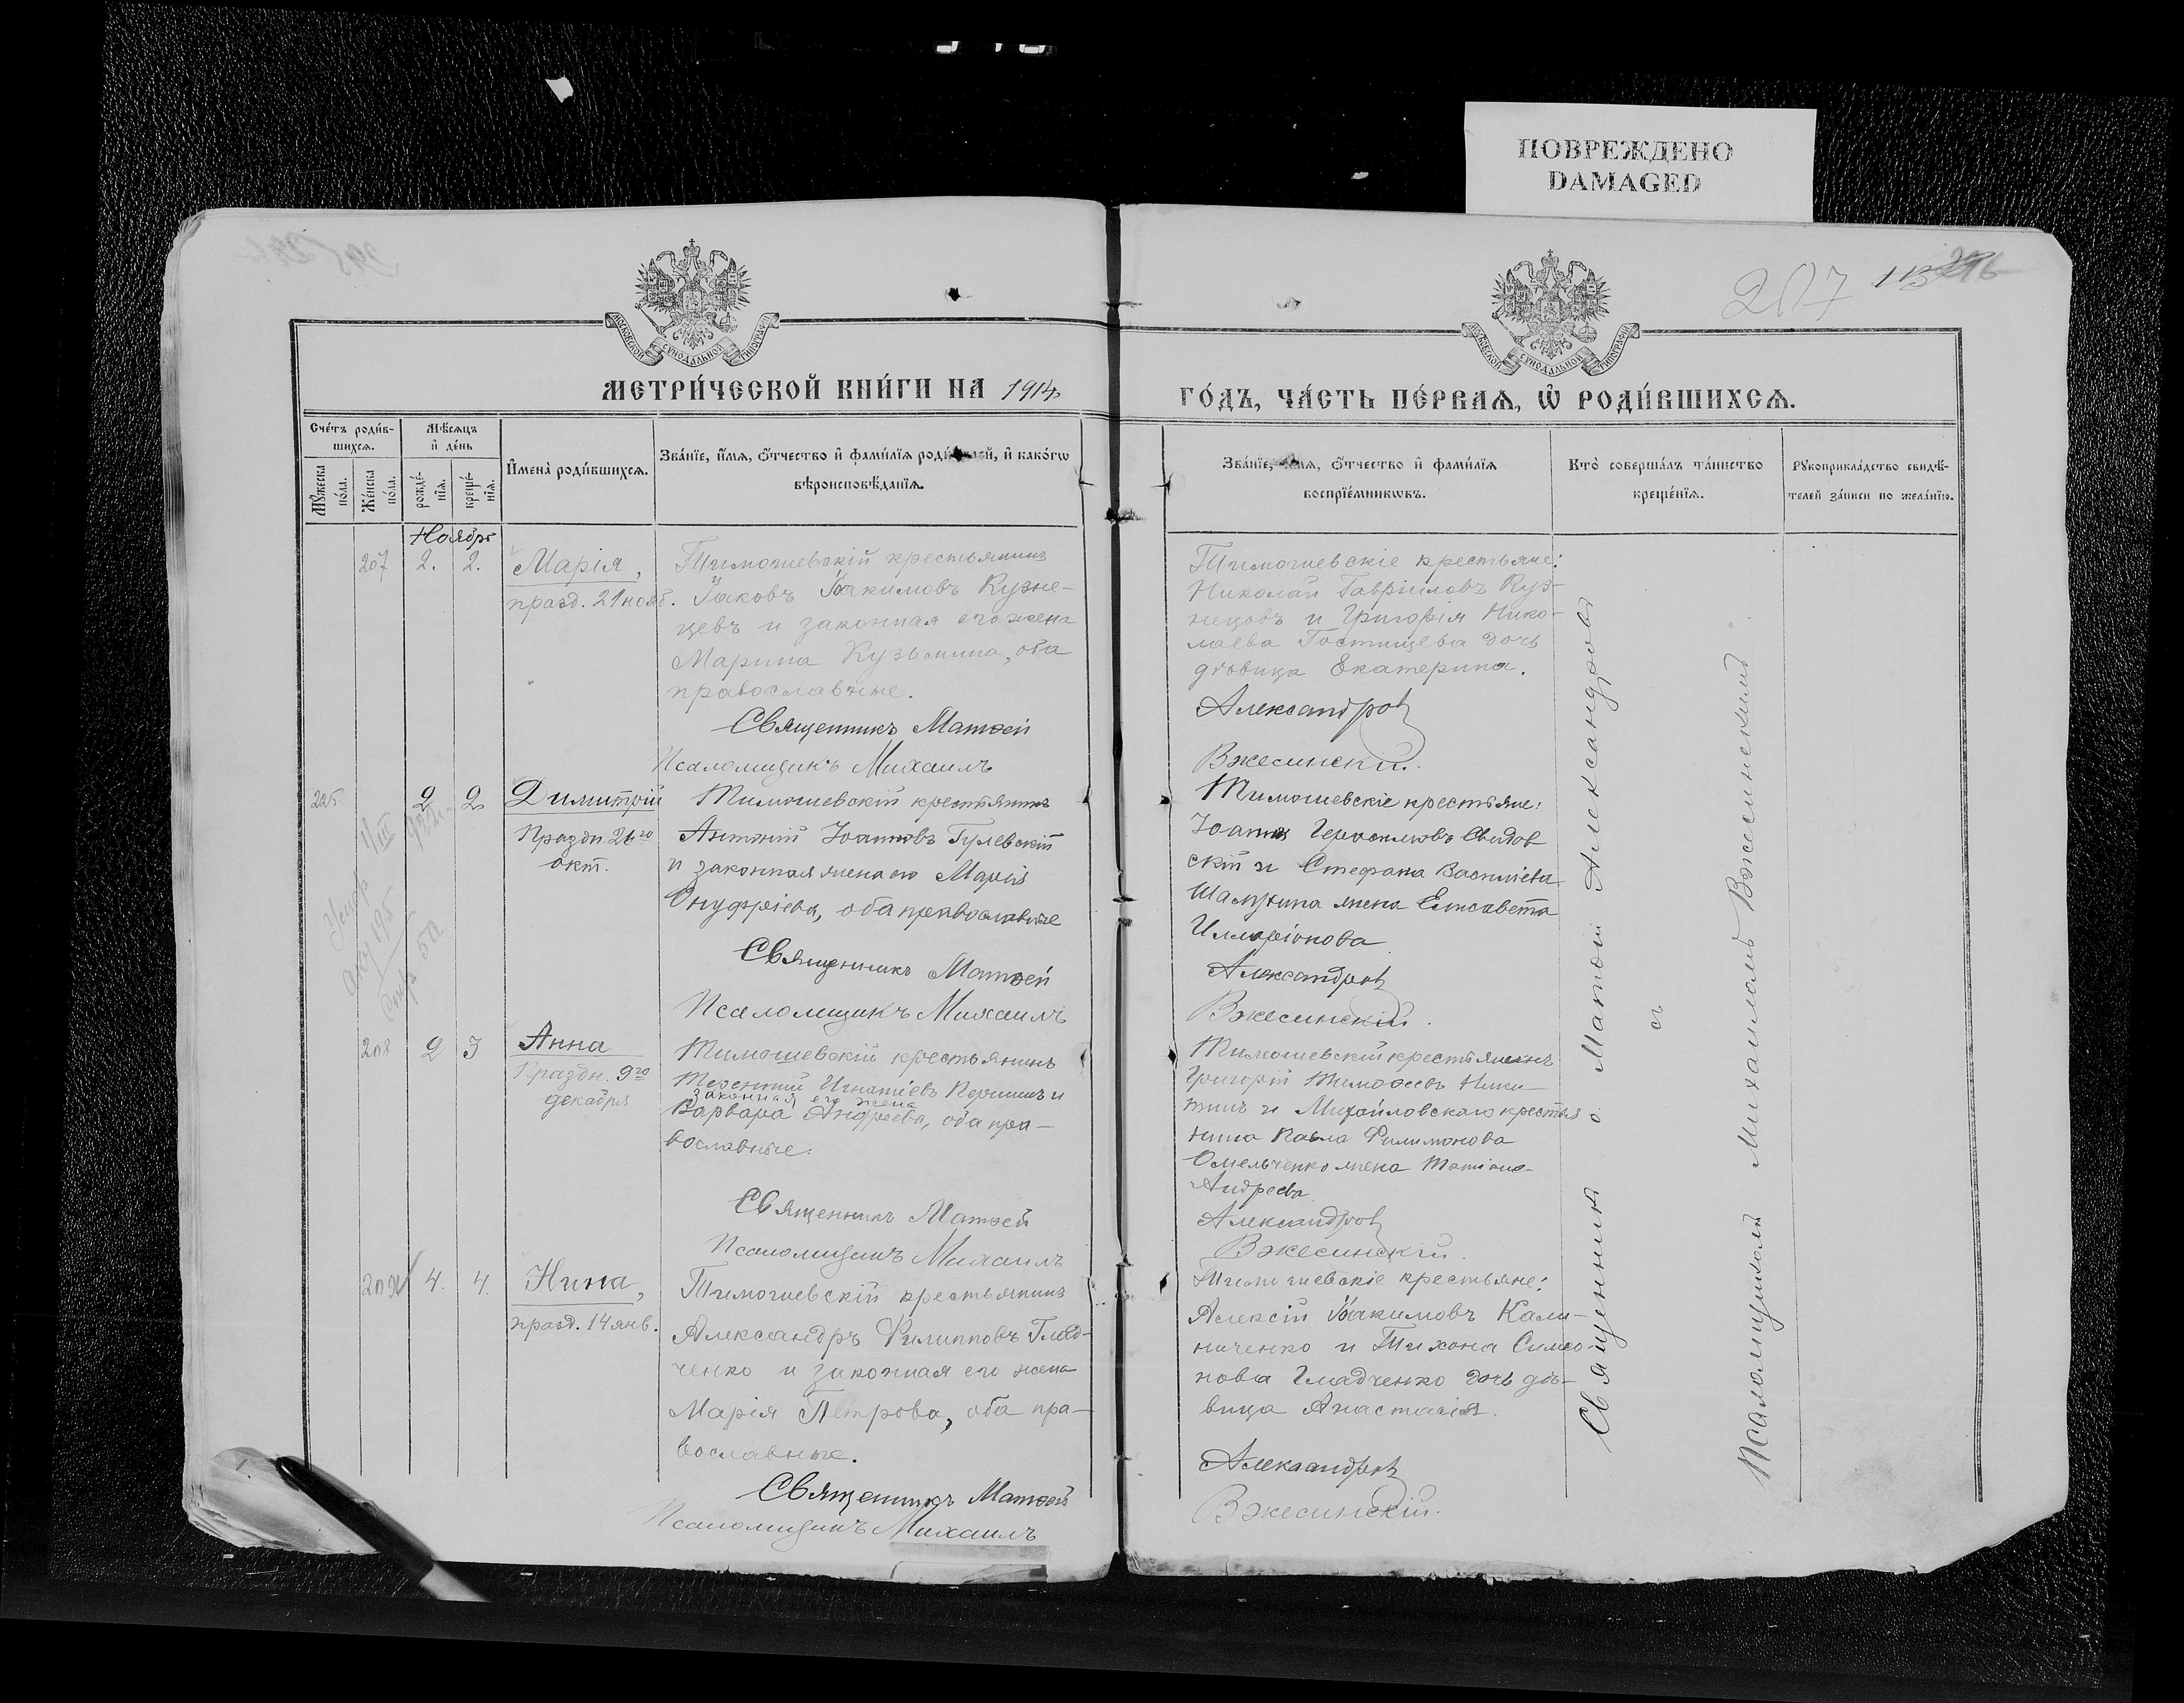 ПОВРЕЖДЕНО
DAMAGED
207
МОСКОВСКОЙ СѴНОДАЛЬНОЙ ТИПОГРАФІИ
МОСКОВСКОЙ СѴНОДАЛЬНОЙ ТИПОГРАФІИ
МЕТРИ́ЧЕСКОЙ КНИ́ГИ НА 1914
ГО́ДЪ, ЧА́СТЬ ПЕ́РВАѦ, Ѡ҆ РОДИ́ВШИХСѦ.
Сче́тъ роди́в-
шихсѧ.
Мꙋ́жеска
по́ла.
Же́нска
по́ла.
Мѣ́сѧцъ
и҆ де́нь
рожде́-
нїѧ.
креще́-
нїѧ.
И҆мена̀ роди́вшихсѧ.
Зва́нїе, и҆́мѧ, ѻ҆́тчество и҆ фами́лїѧ роди й, и҆ како́гѡ
вѣроисповѣ́данїѧ.
Зва́нїе, и҆́мѧ, ѻ҆́тчество и҆ фами́лїѧ
воспрїе́мникѡвъ.
Кто̀ соверша́лъ та́инство
креще́нїѧ.
Рꙋкоприкла́дство свидѣ́-
телей за́писи по жела́нїю.
Ноябрь
207 2. 2. Марія,
празд. 21 нояб.
Тимошевскій крестьянинъ
Іаковъ Іоакимовъ Кузне-
цевъ и законная его жена
Марина Кузьмина, оба
православные.
Священникъ Матѳей
Псаломщикъ Михаилъ
Тимошевскіе крестьяне:
Николай Гавріиловъ Куз-
нецовъ и Григорія Нико-
лаева Гостищева дочь
дѣвица Екатерина.
Александровъ
Вжесинскій.
225 2 2 Димитрій
Праздн. 26го
окт.
Тимошевскій крестьянинъ
Антоній Іоанновъ Гулевскій
и законная жена его Марія
Онуфріева, оба православные
Священникъ Матѳей
Псаломщикъ Михаилъ
Тимошевскіе крестьяне:
Іоаннъ Свидов
скій и Стефана Василіева
жена Елисавета
Илларіонова
Александровъ
Вжесинскій.
208 2 3 Анна
Праздн. 9го
декабря
Тимошевскій крестьянинъ
Терентій Игнатіевъ Першинъ и
законная его жена
Варвара Андреева, оба пра-
вославные.
Священникъ Матѳей
Псаломщикъ Михаилъ
Тимошевскій крестьянинъ
Григорій Тимофеевъ Ники-
тинъ и Михайловскаго крестья
нина Павла Филимонова
Омельченко жена Татіана
Андреева
Александровъ
Вжесинскій.
4. 4. Нина,
празд. 14 янв.
Тимошевскій крестьянинъ
Александръ Филипповъ Глад-
ченко и законная его жена
Марія Петрова, оба пра-
вославные.
Священникъ Матѳей
Псаломщикъ Михаилъ
Тимошевскіе крестьяне:
Алексій Іоакимовъ Кали-
ниченко и Тихона Симео-
нова Гладченко дочь дѣ-
вица Анастасія.
Александровъ
Вжесинскій.
Священникъ о. Матѳей Александровъ
съ
Псаломщикомъ Михаиломъ Вжесинскимъ